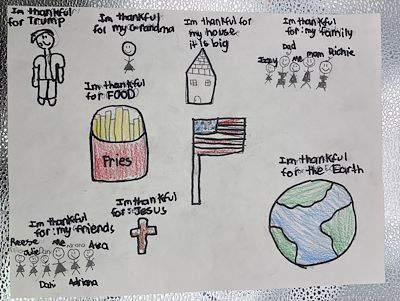 Im thankful
for Trump
Im thankful
for my Grandma
Im thankful for
my house
it is big
Im thankful
for: my family
Dad
Me mom Richie
Im thankful
for FOOD
Fries
Im thankful
for the Earth
Im thankful
for: Jesus
Im thankful
for: my friends
Reese
Me
Ava
Adriana